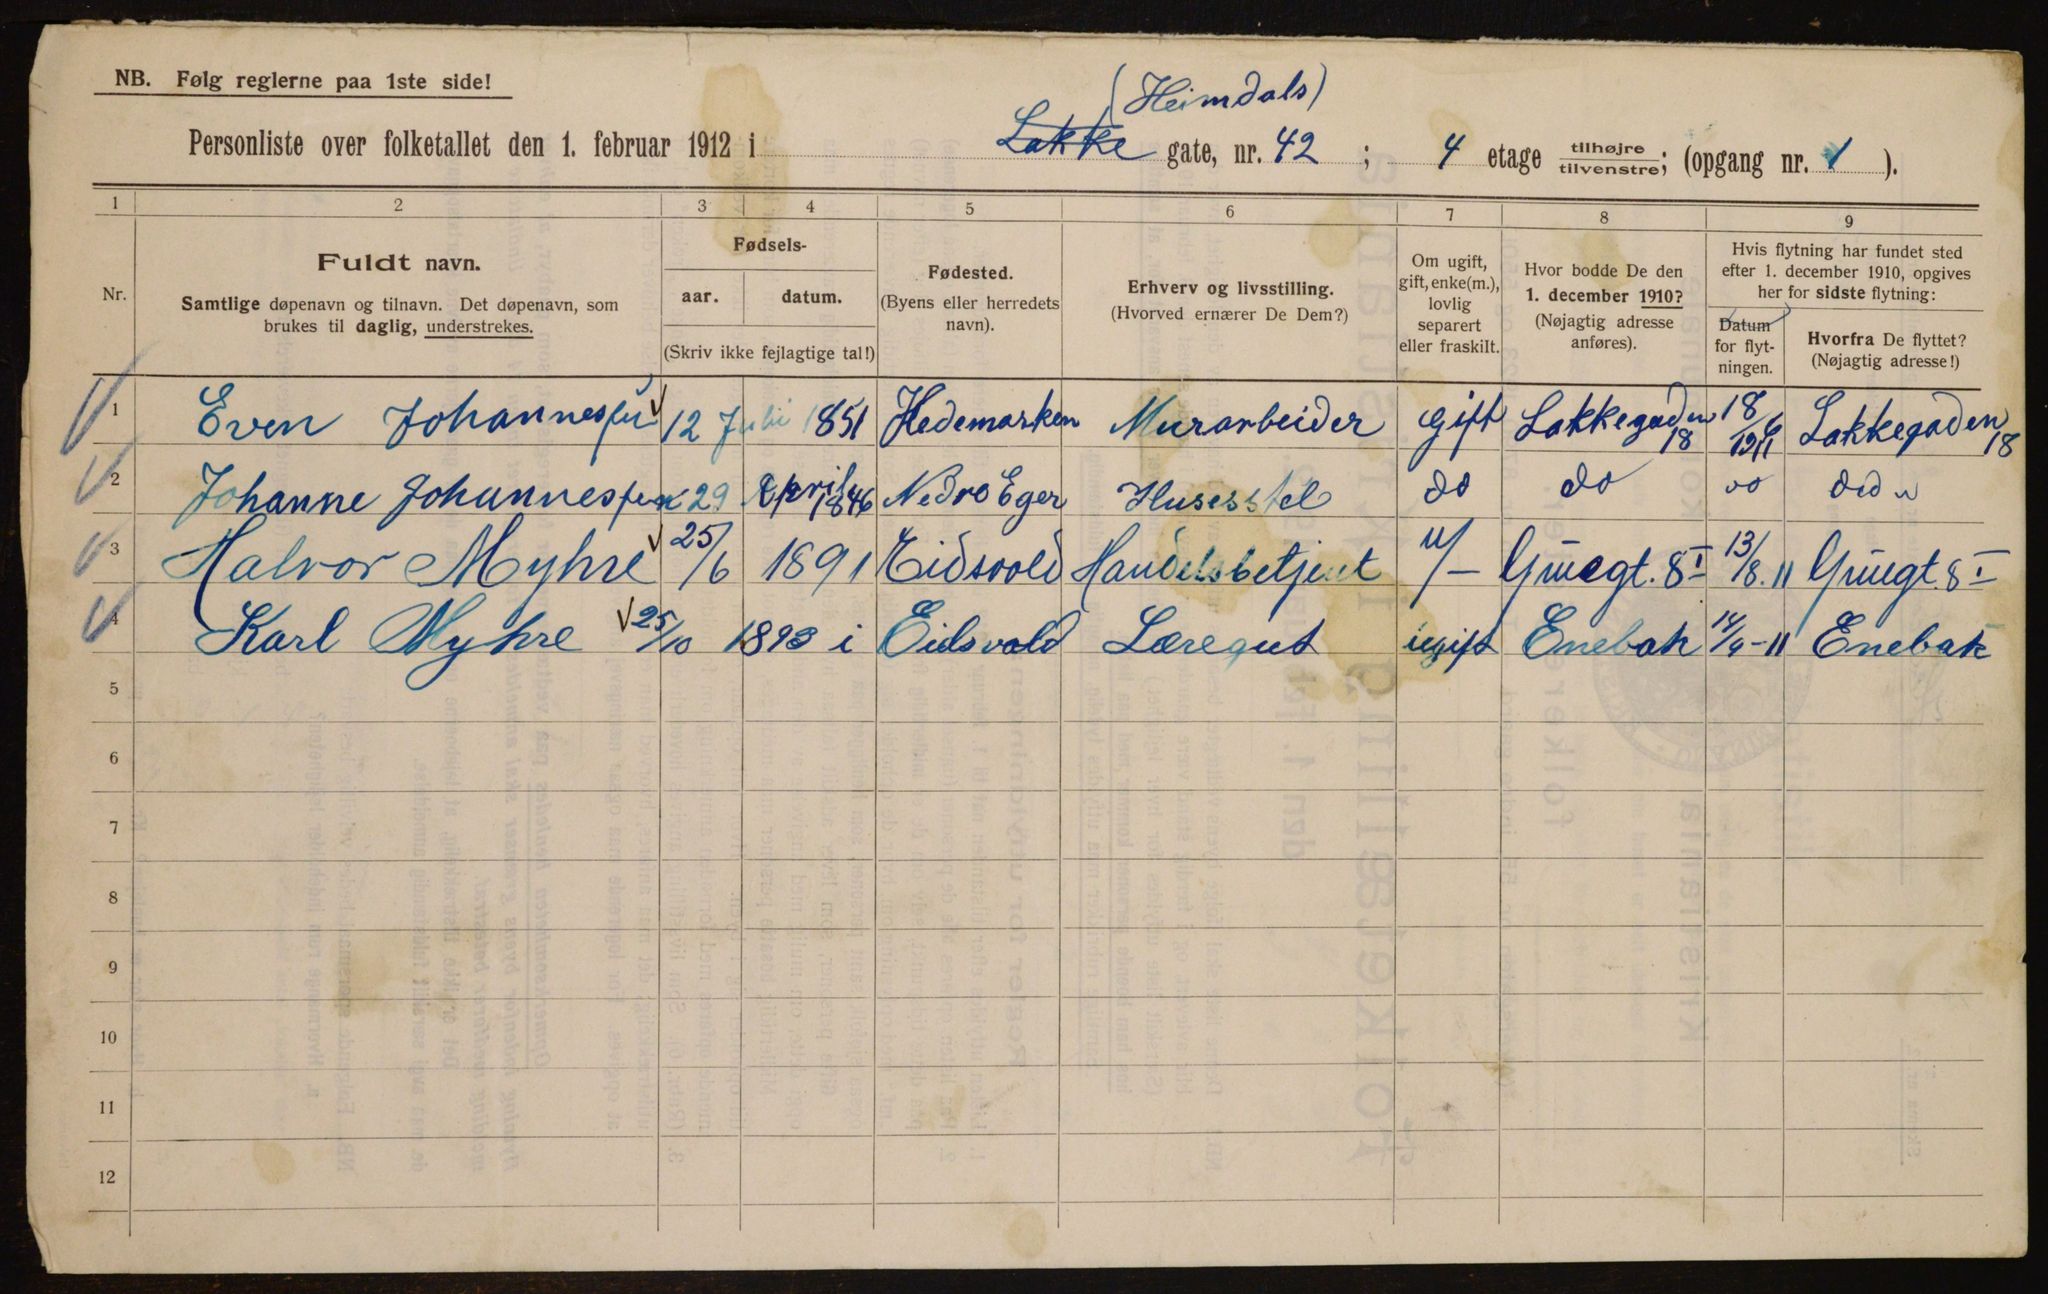 NB. Følg reglerne paa 1ste side!
(Heimdals)
Personliste over folketallet den 1. februar 1912 i Lakke gate, nr. 42 ; 4 etage tilhøjre tilvenstre; (opgang nr. 1 ).
1 2 3 4 5 6 7 8 9
Nr.
Fuldt navn.
Samtlige døpenavn og tilnavn. Det døpenavn, som
brukes til daglig, understrekes.
Fødsels-
aar. datum.
(Skriv ikke fejlagtige tal!)
Fødested.
(Byens eller herredets
navn).
Erhverv og livsstilling.
(Hvorved ernærer De Dem?)
Om ugift,
gift, enke(m.),
lovlig
separert
eller fraskilt.
Hvor bodde De den
1. december 1910?
(Nøjagtig adresse
anføres).
Hvis flytning har fundet sted
efter 1. december 1910, opgives
her for sidste flytning:
Datum
for flyt-
ningen.
Hvorfra De flyttet?
(Nøjagtig adresse!)
1 Even 12 Juli 1851 Hedemarken Murarbeider gift Lakkegaden 18 18/6 1911 Lakkegaden 18
2 Johanne 29 April 1846 Nedro Eger Husesstel do do do
3 Halvor Myhre 25/6 1891 Eidsvold Handelsbetjent 8 I 13/8. 11 8 I
4 Karl Myhre 25/10 1893 i Eidsvold Læregut ugift Enebak 14/9-11 Enebak
5
6
7
8
9
10
11
12